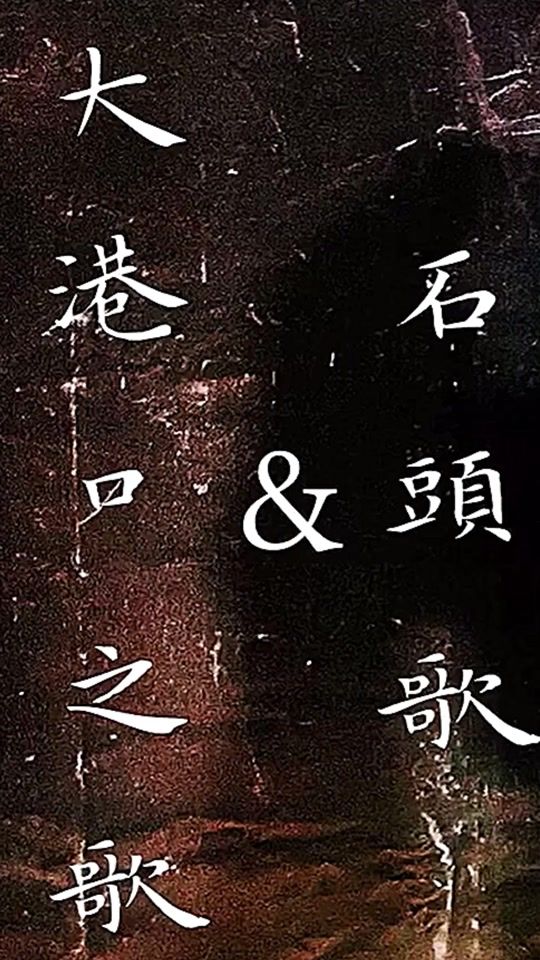 石頭歌
&
大港口之歌